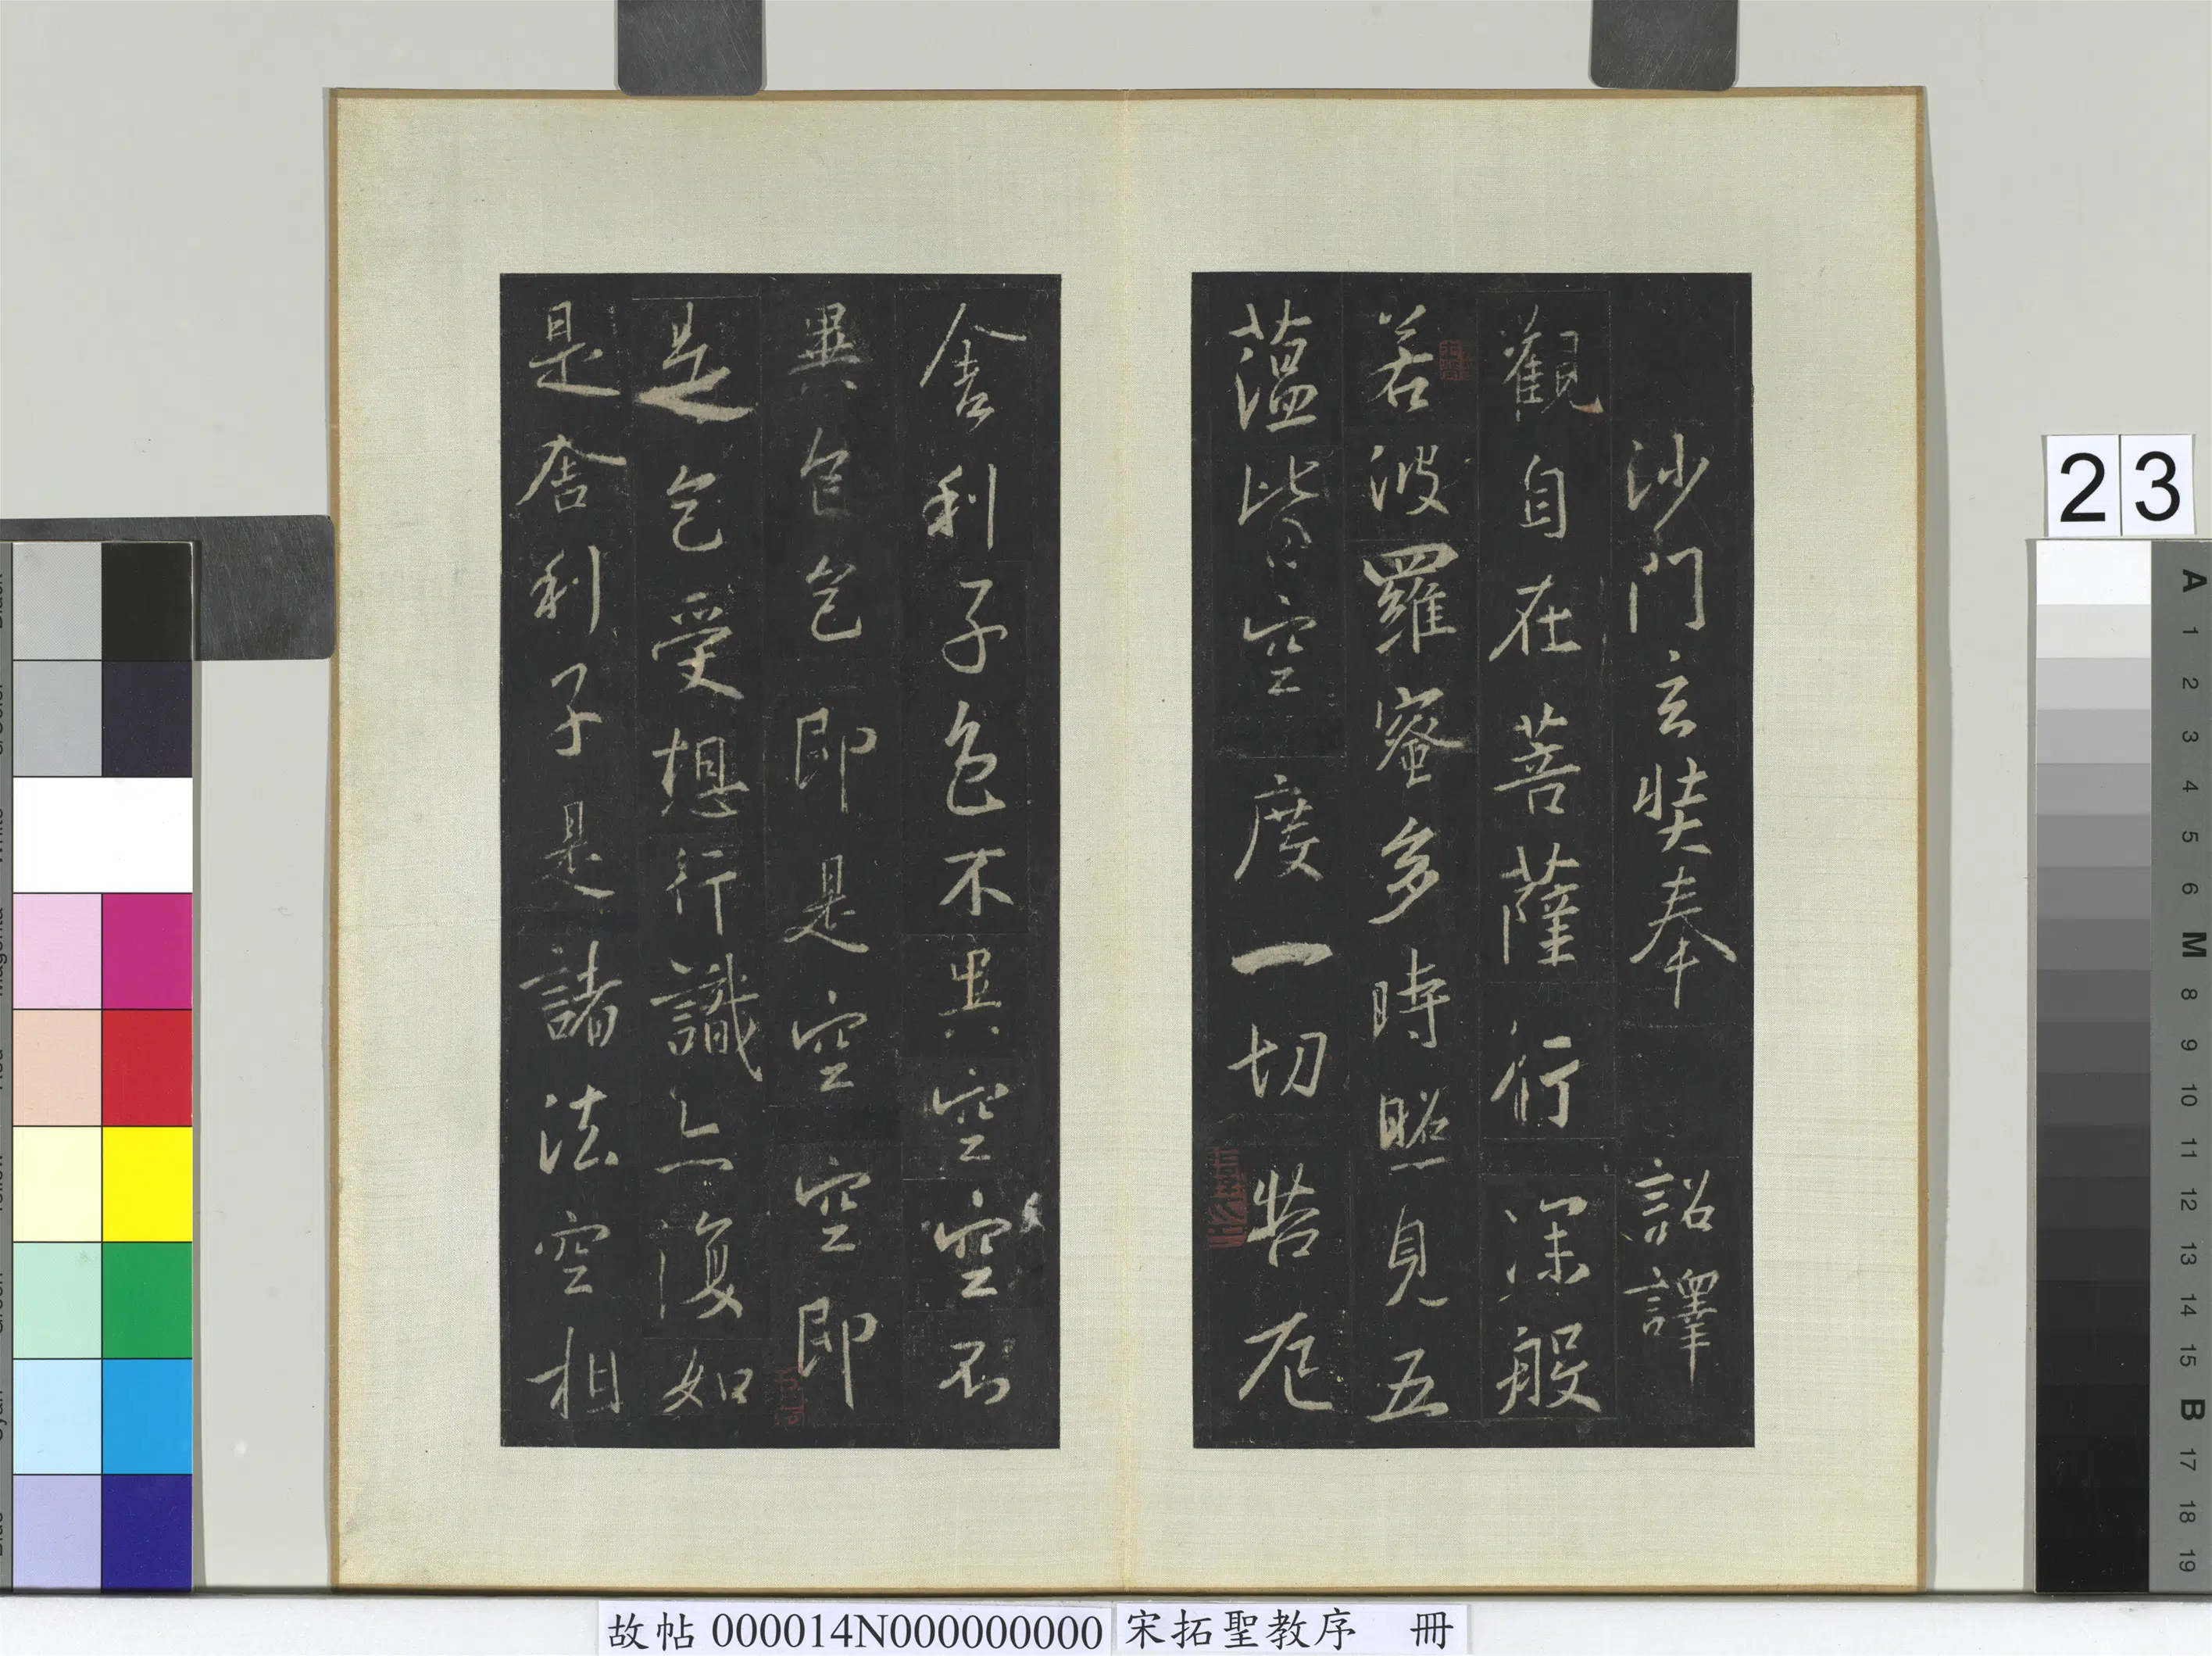 沙門玄奘奉 詔譯
觀自在菩薩行深般
若波羅蜜多時照見五
蘊皆空度一切苦厄
舍利子色不異空空不
異色色即是空空即
是色受想行識亦復如
是舍利子是諸法空相
23
A 1 2 3 4 5 6 M 8 9 10 11 12 13 14 15 B 17 18 19
故帖 000014N000000000 宋拓聖教序 冊